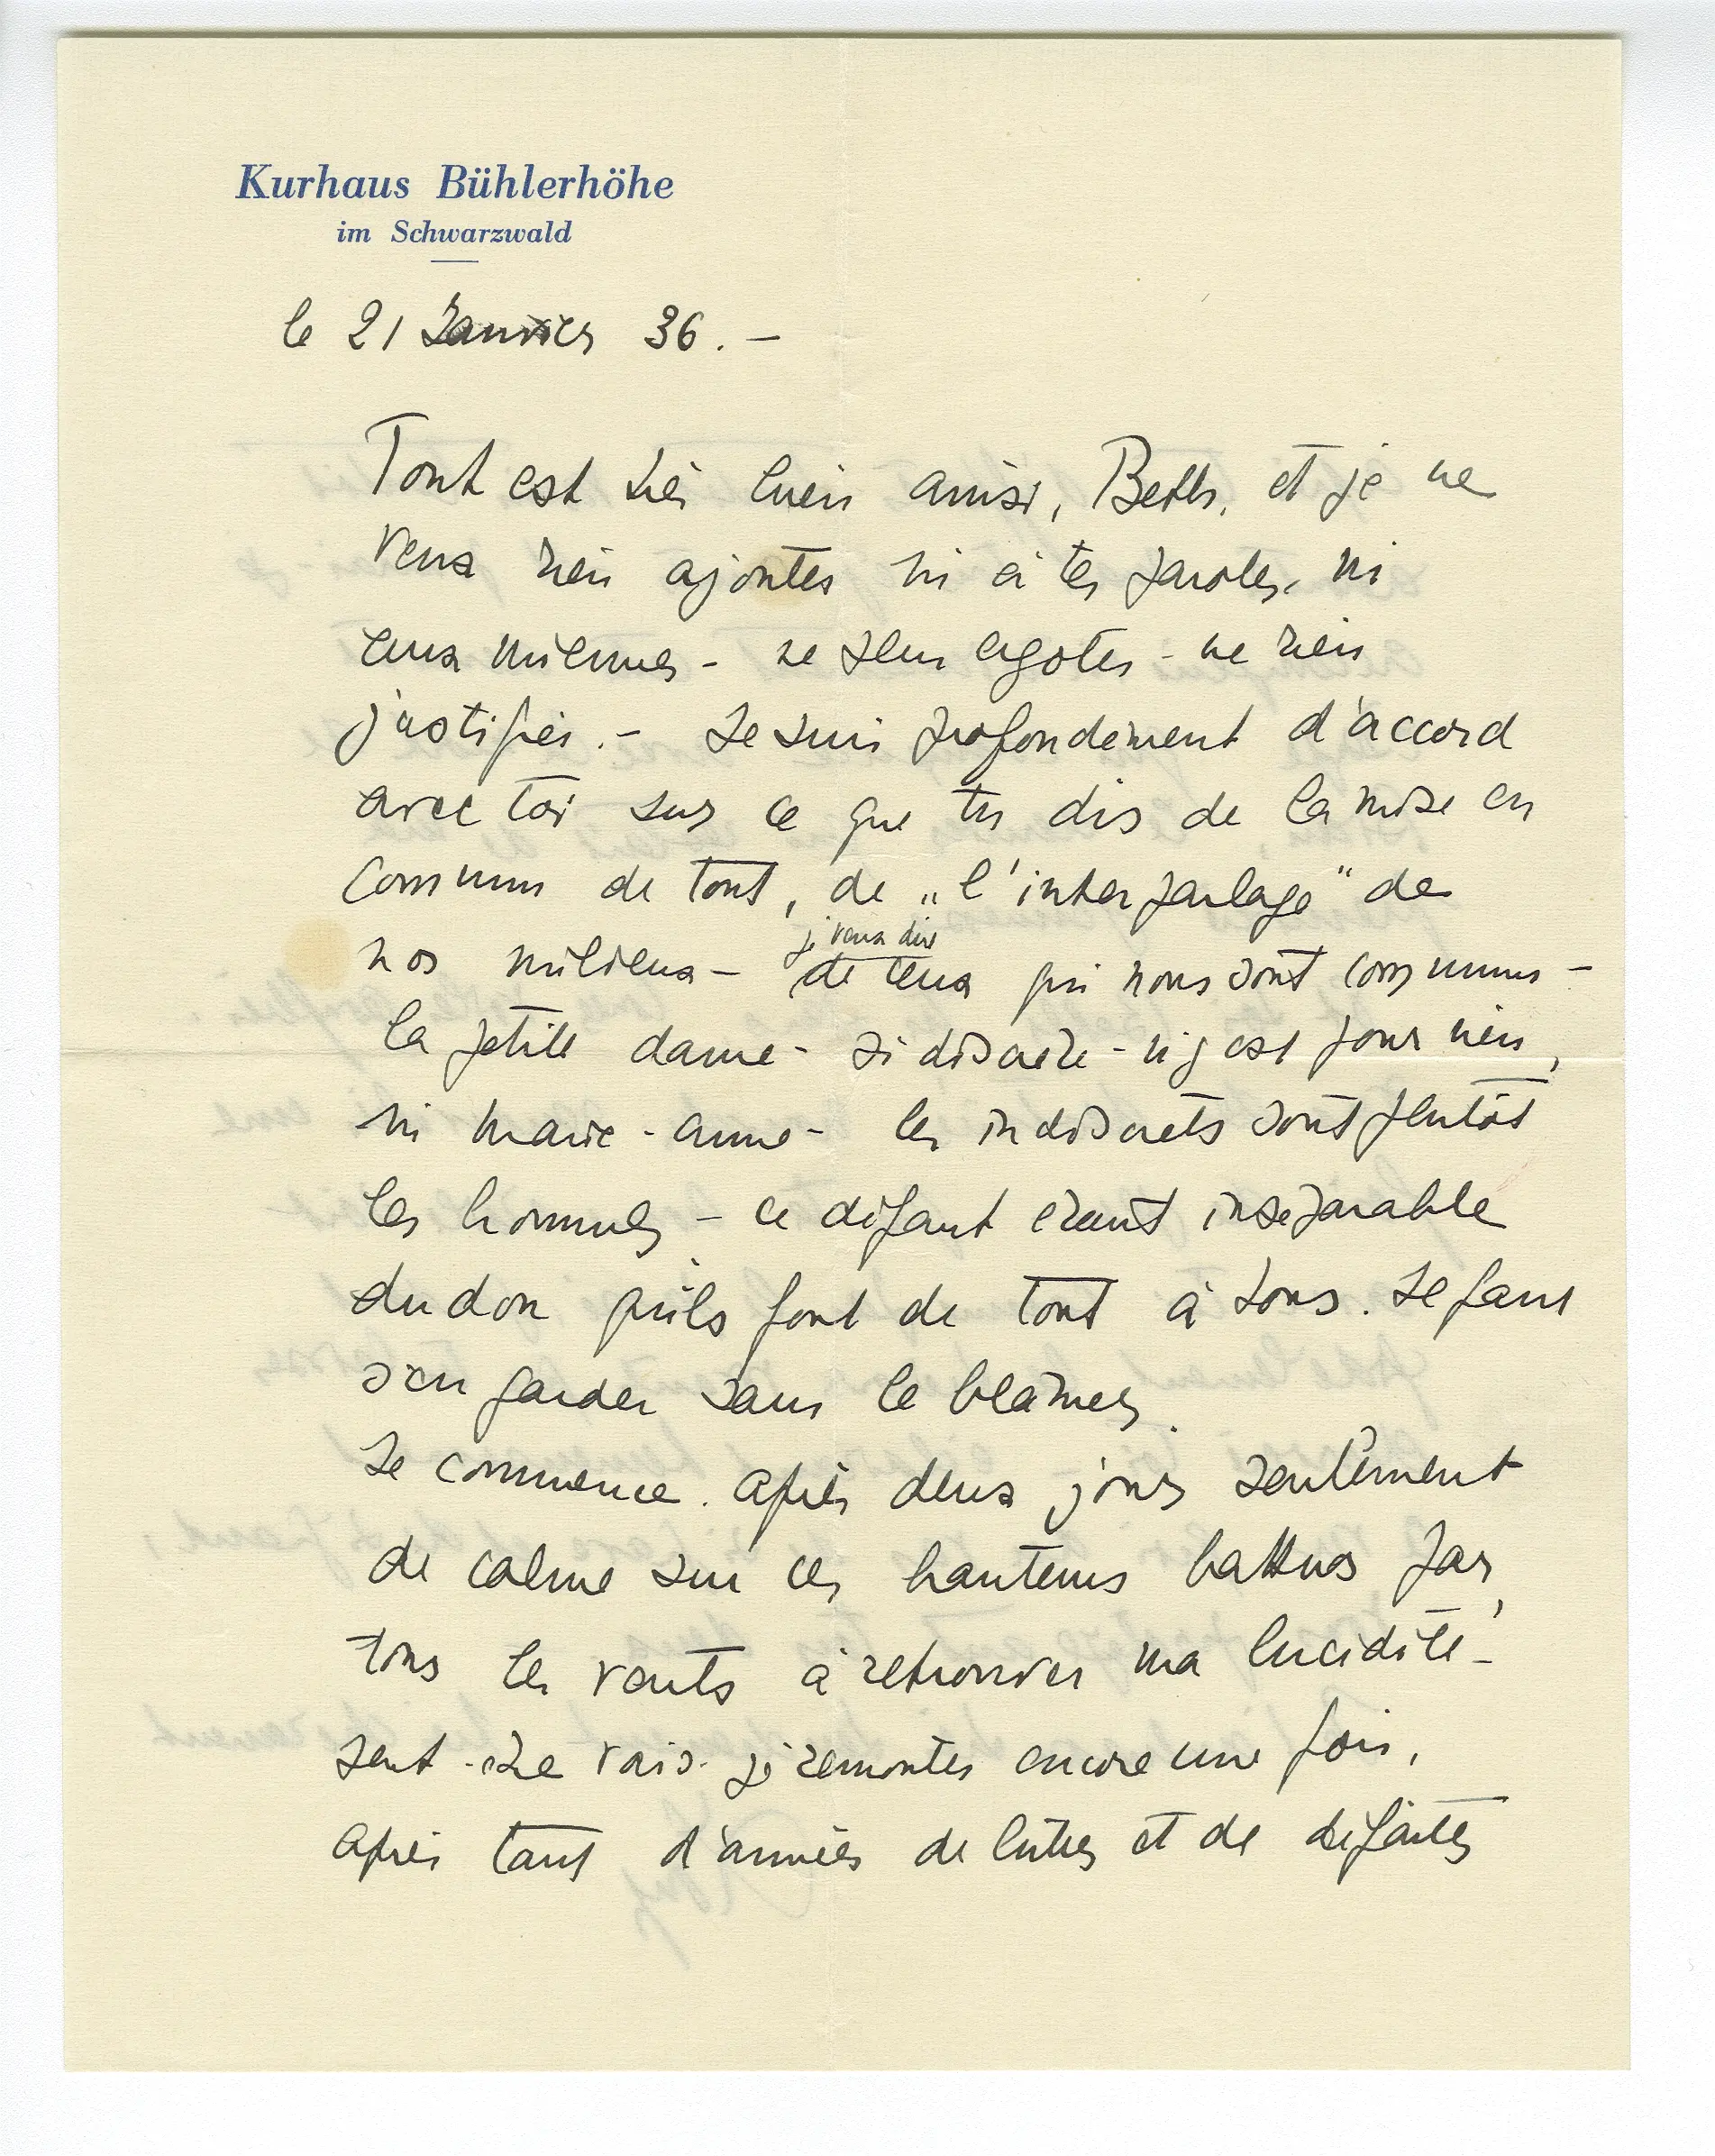 Kurhaus Bühlerhöhe
im Schwarzwald
le 21 Janvier 36. –
Tout est très bien ainsi, Beth, et je ne
veux rien ajouter ni à tes paroles, ni
aux miennes – ne plus ergoter – ne rien
justifier. – Je suis profondément d'accord
avec toi sur ce que tu dis de la mise en
commun de tout, de „l'interparlage" de
nos milieux – de ceux qui nous sont communs –
je veux dire
la petite dame – si discrète – n'y est pour rien,
ni Marie-Anne – les indiscrets sont plutôt
les hommes – ce défaut étant inséparable
du don qu'ils font de tout à tous. Il faut
s'en garder sans le blâmer.
Je commence. après deux jours seulement
de calme sur ces hauteurs battues par
tous les vents à retrouver ma lucidité –
peut-être vais-je remonter encore une fois,
après tant d'années de luttes et de défaites